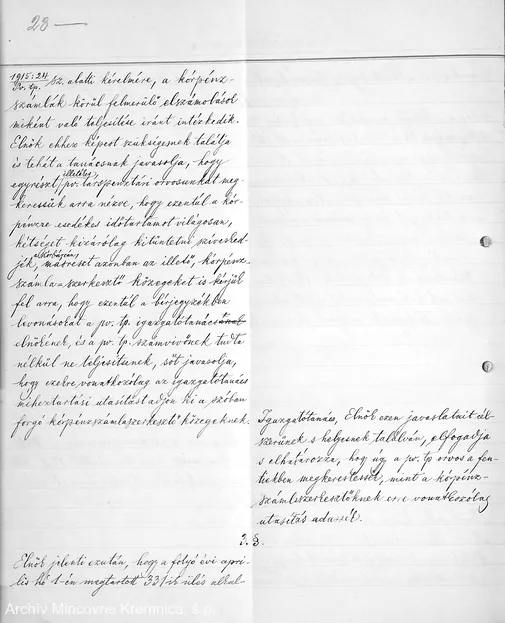 23 —
1915:24
Pv. tp. sz. alatti kérelmére, a kórpénz-
számlák körül felmerülő elszámolások
miként való teljesítése iránt intézkedik.
Elnök ehhez képest szükségesnek találja
és tehát a tanácsnak javasolja, hogy
egyrészt illetékes pv. társpénztári orvosunkat meg-
keressük arra nézve, hogy ezentúl a kór-
pénzre esedékes időtartamot világosan,
kétséget kizárólag kitüntetni szívesked-
jék, másrészt azonban az illető, kórpénz-
számla-szerkesztő közegeket is kérjük
fel arra, hogy ezentúl a bérjegyzékben
levonásokat a pv. tp. igazgatótanács
elnökének, és a pv. tp. számvivőnek tudta
nélkül ne teljesítsenek, sőt javasolja,
hogy ezekre vonatkozólag az igazgatótanács
miheztartási utasítást adjon ki a szóban
forgó kórpénzszámlaszerkesztő közegeknek.
Igazgatótanács, Elnök ezen javaslatait cél-
szerűnek s helyesnek találván, elfogadja
s elhatározza, hogy úgy a pv. tp. orvos a fen-
tiekben megkerestessék, mint a kórpénz-
számlaszerkesztőknek erre vonatkozólag
utasítás adassék.
3. §.
Elnök jelenti ezután, hogy a folyó évi ápri-
lis hó 1-én megtartott 331ik ülés alkal-
Archív Mincovne Kremnica, š.p.